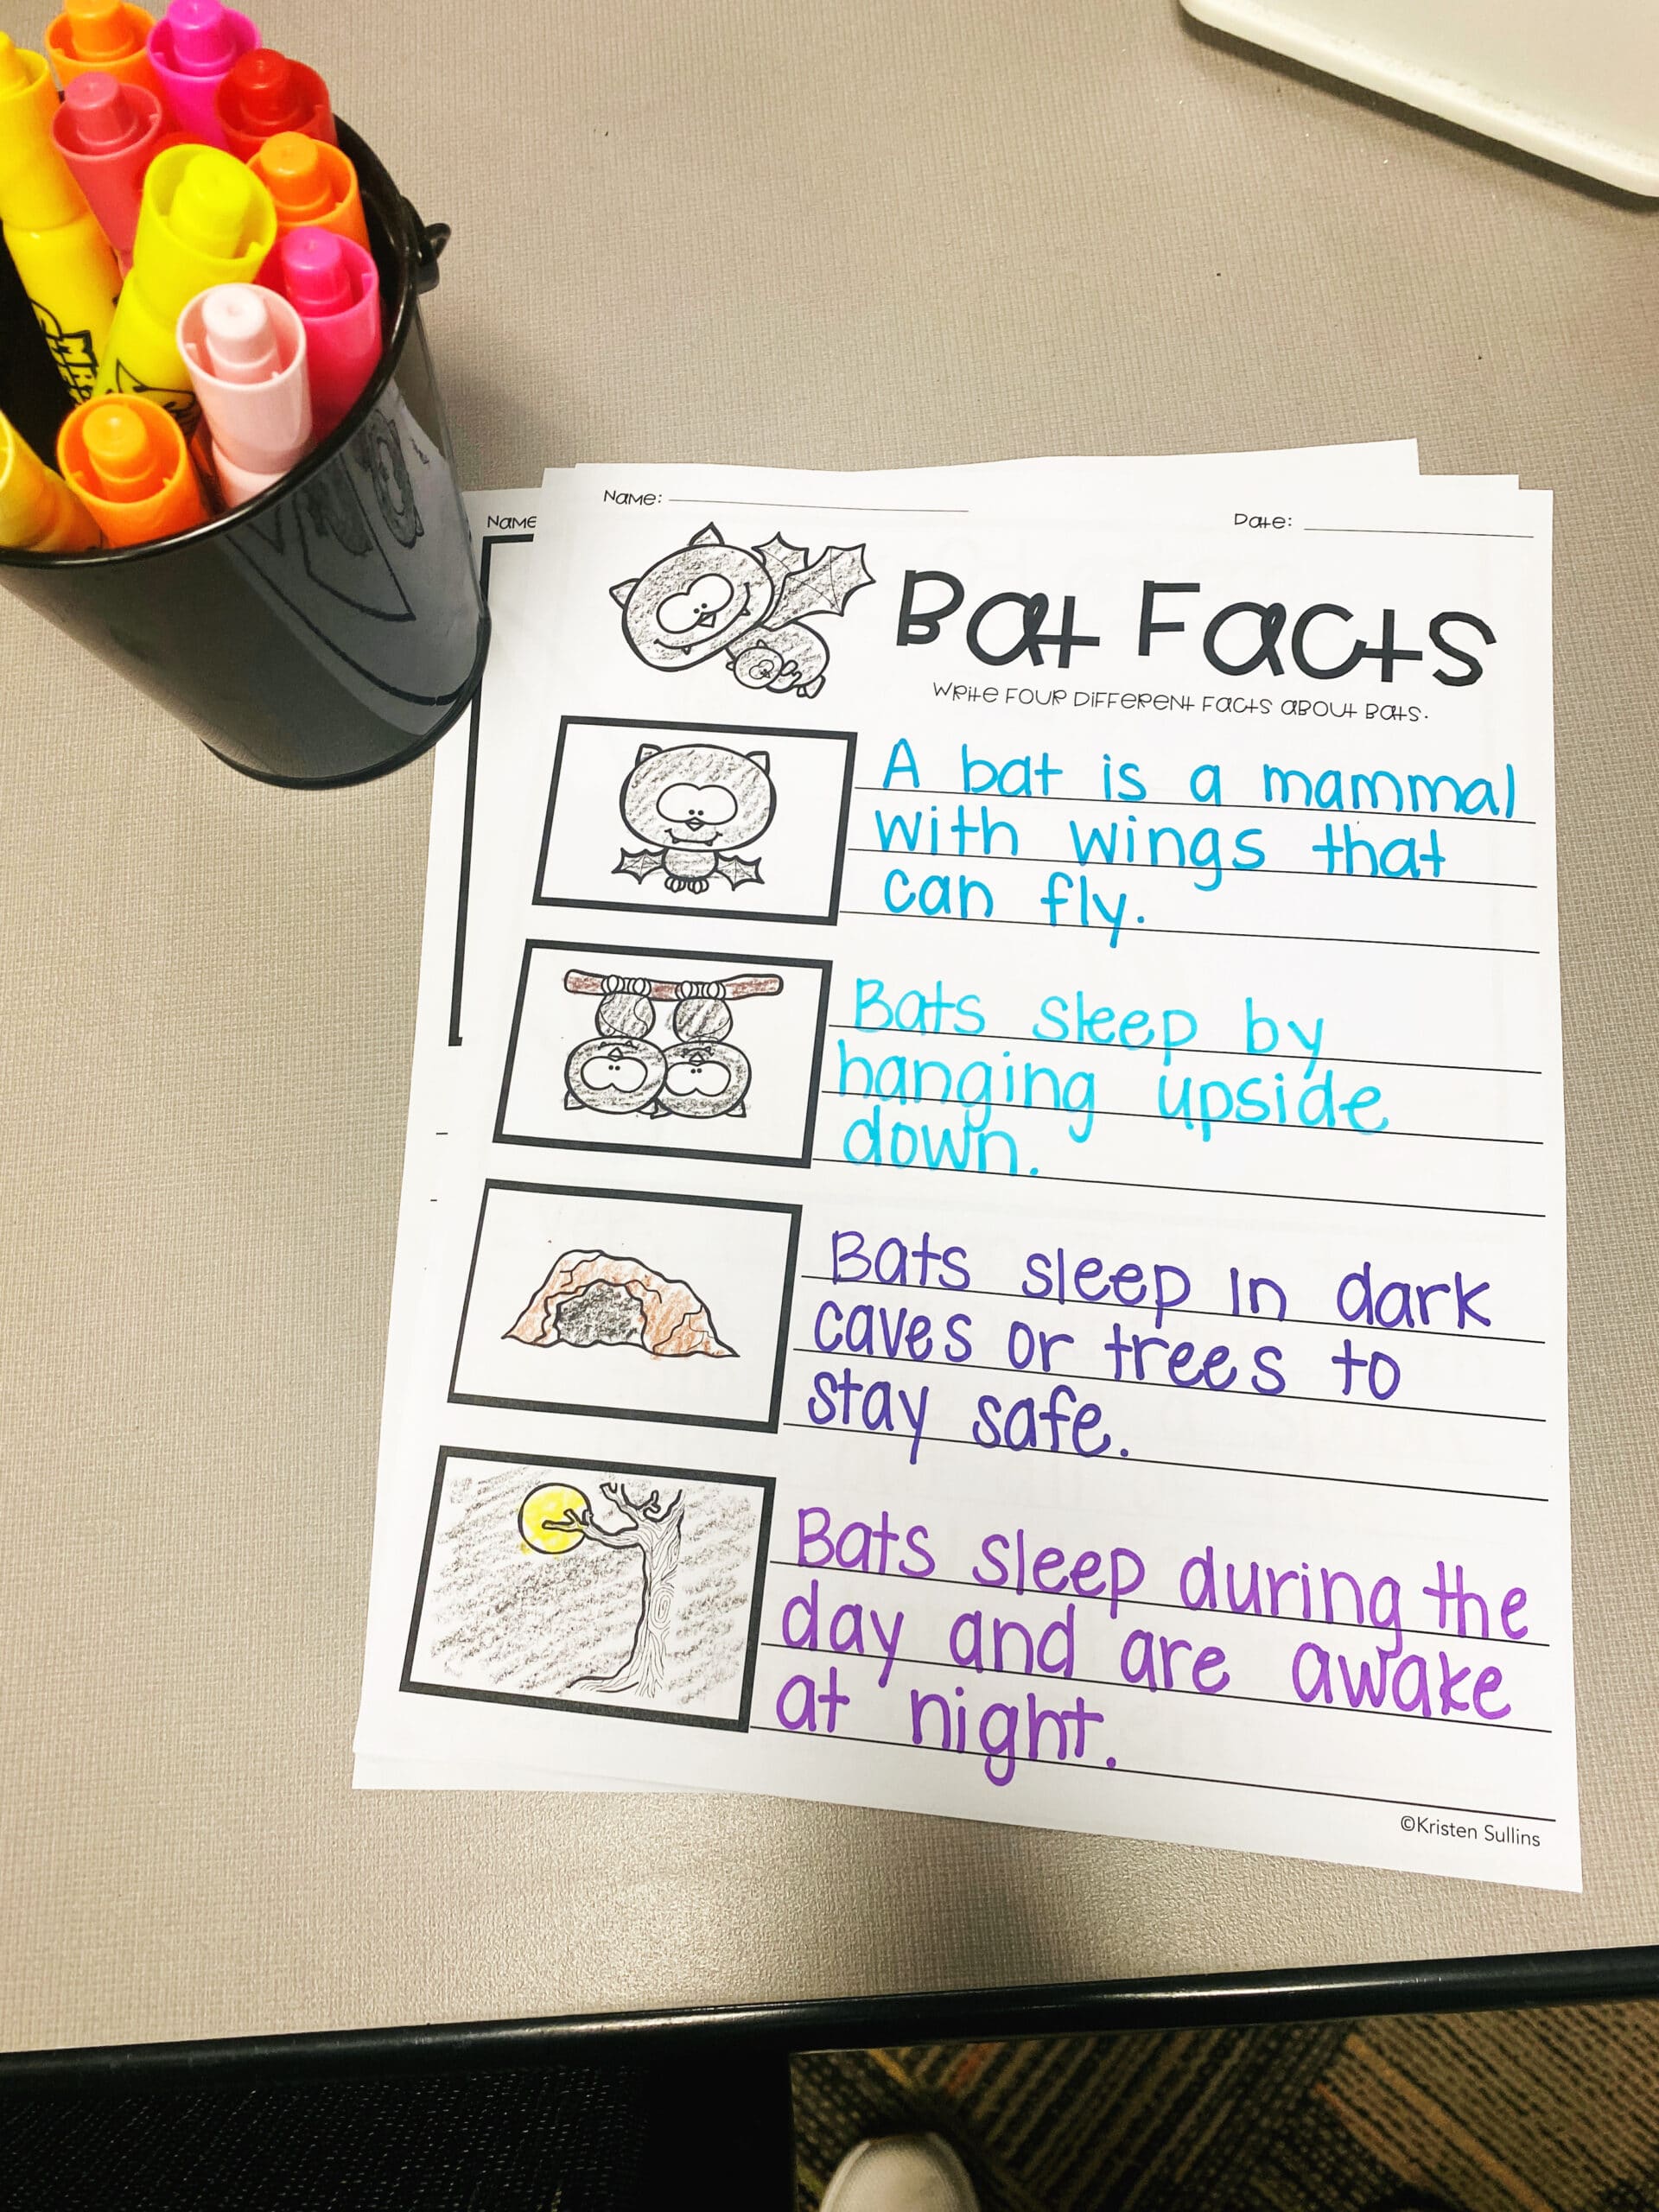 Name:
Name:
Date:
Bat Facts
Write four different facts about bats.
A bat is a mammal
with wings that
can fly.
Bats sleep by
hanging upside
down.
Bats sleep in dark
caves or trees to
stay safe.
Bats sleep during the
day and are awake
at night.
©Kristen Sullins